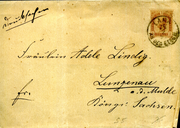 Drucksache
Fräulein Adele Lindig
Lunzenau
a. d. Mulde
Fr.
Königr. Sachsen.